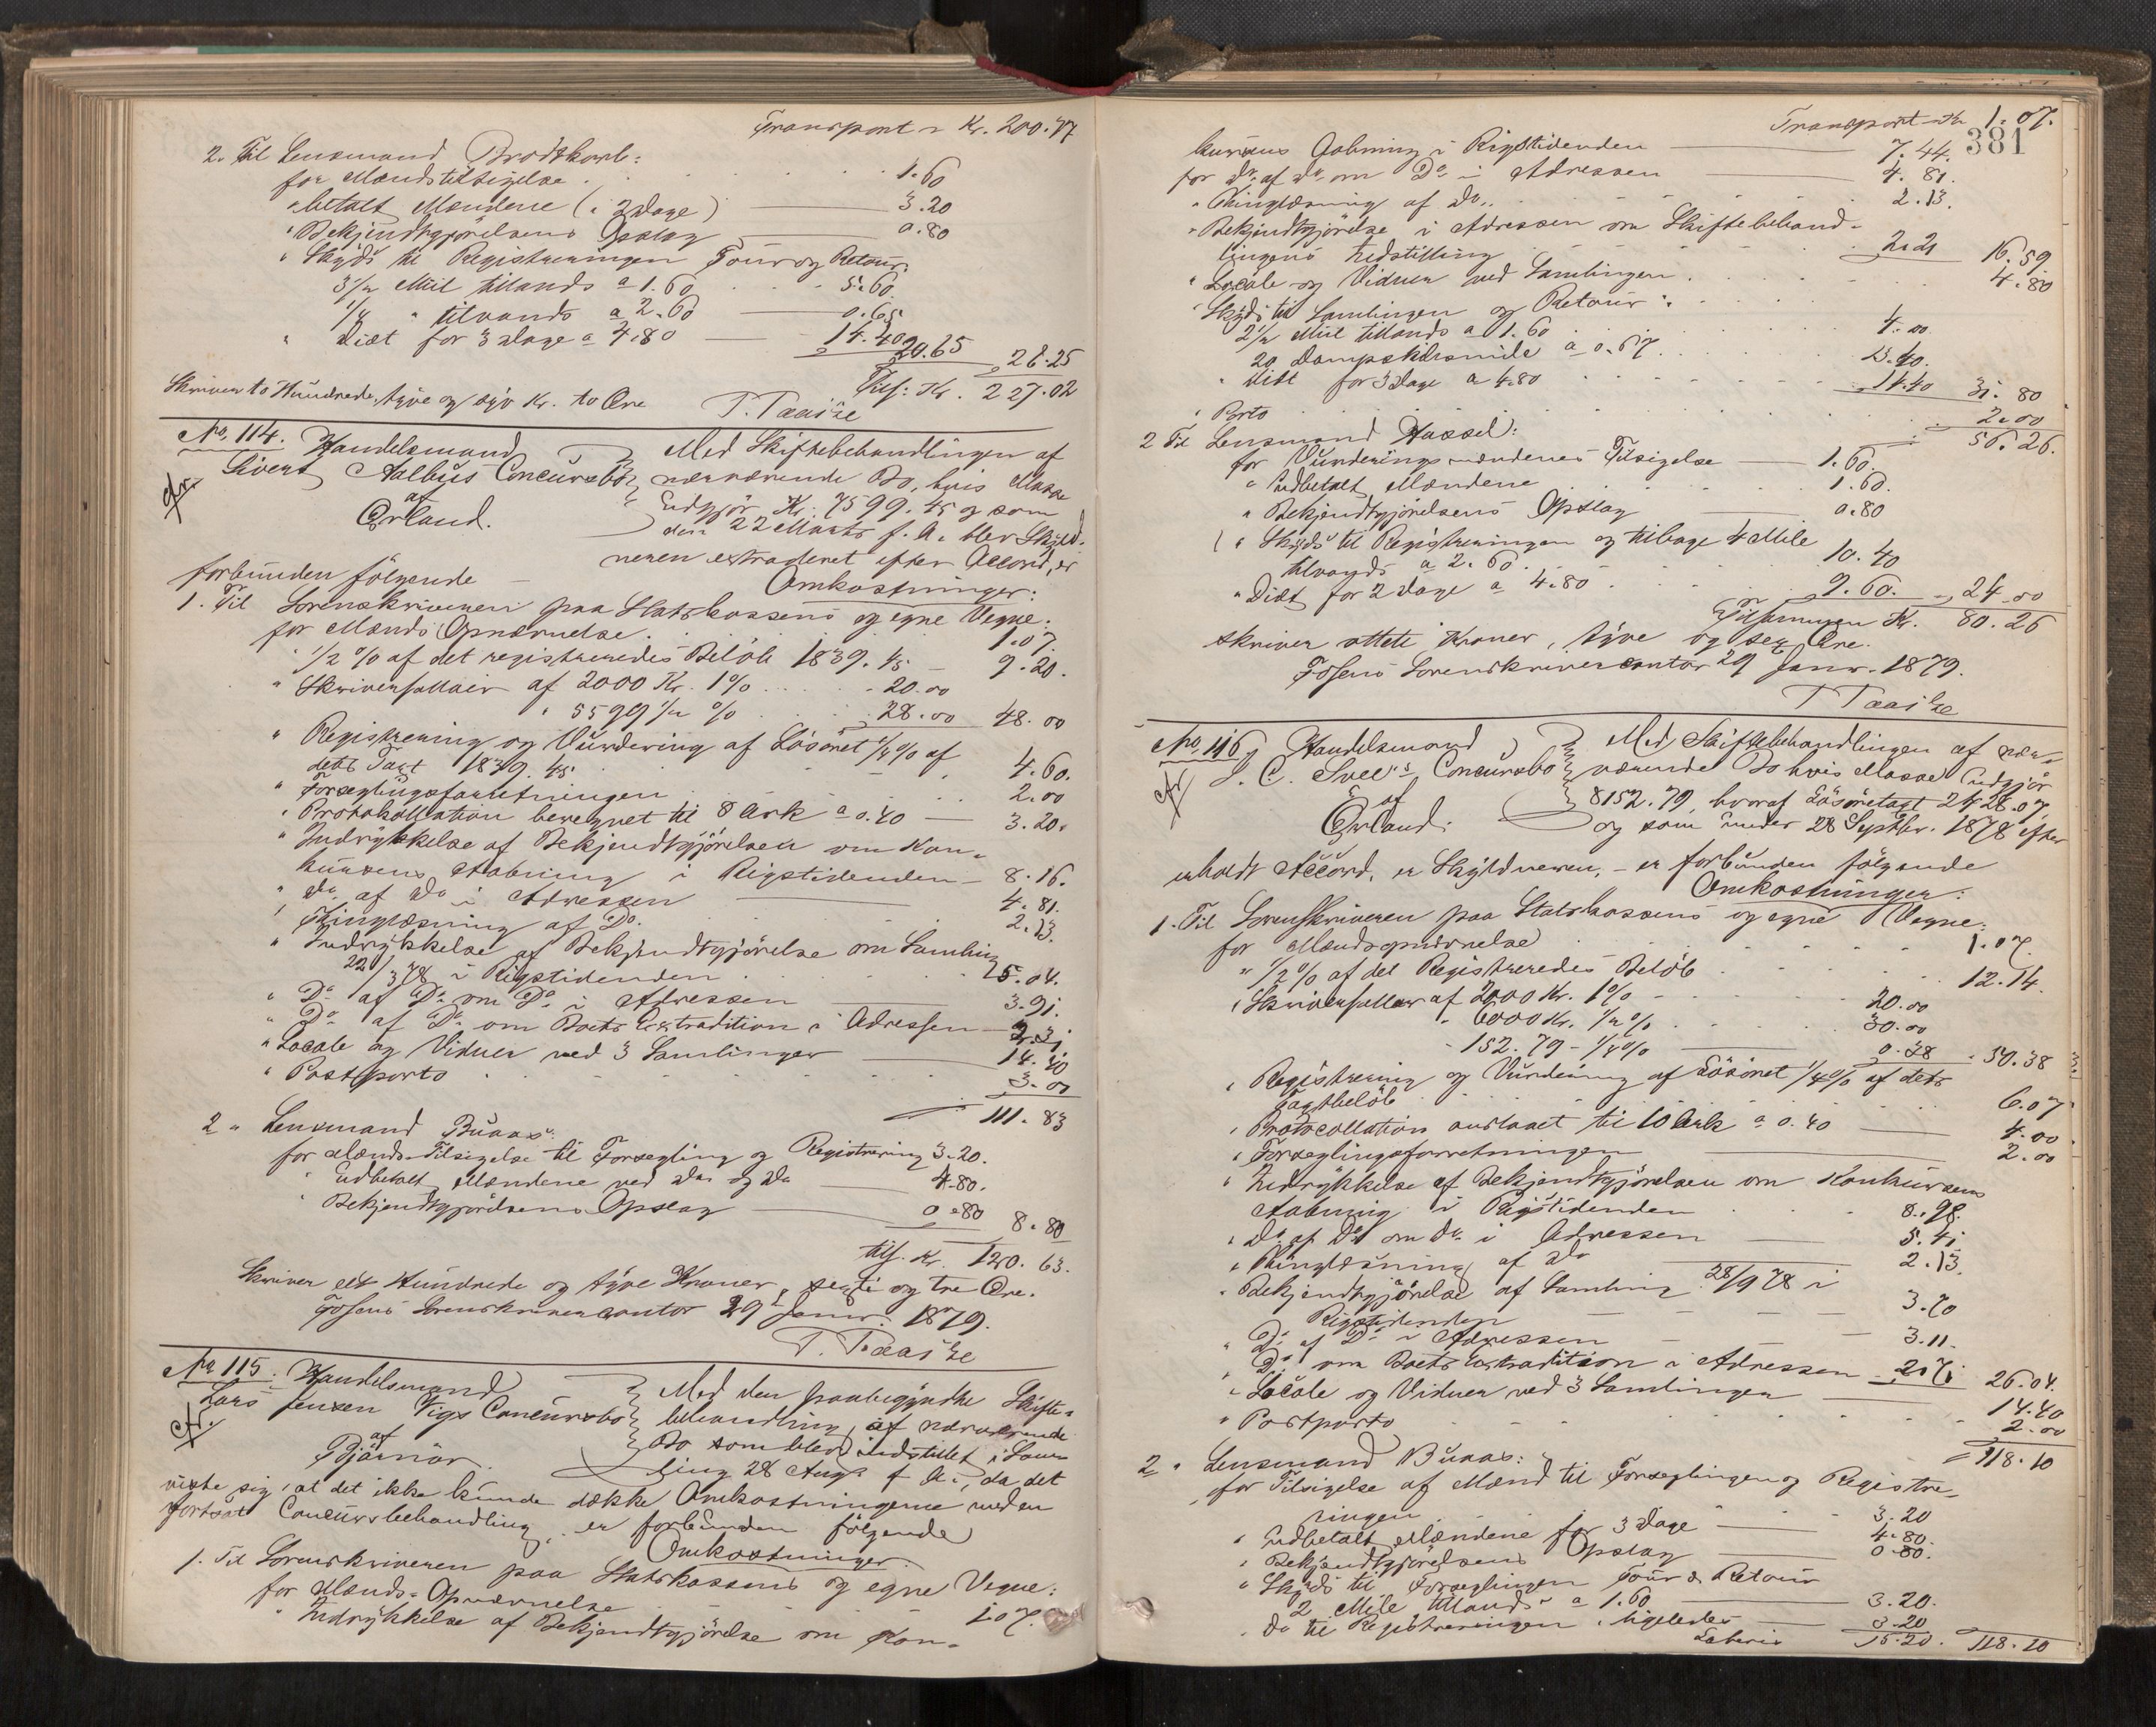 Transport Kr. 200.77
2. Til Lensmand Brodtkorb:
for Mændstilsigelse . 1.60
" betalt Mændene (i 2 Dage) 3.20
" Bekjendtgjørelsens Opslag 0.80
" Skyds til Registreringen Tour og Retour:
3 1/2 Miil tillands a 1.60 5.60
1/4 " tilvands a 2.60 0.65
" Diæt for 3 Dage a 4.80 14.40 20.65 26.25
Tils: Kr. 227.02
Skriver to Hundrede, tyve og syv Kr. to Øre
T. Taasze
No. 114. Handelsmand
Sivert Aalbus Concursbo
af
Ørland.
Med Skiftebehandlingen af
nærværende Bo, hvis Masse
Udgjør Kr. 7599.45 og som
den 22 Marts f. A. blev Skyld-
neren extraderet efter Accord, er
forbunden følgende
Omkostninger:
1. Til Sorenskriveren paa Statskassens og egne Vegne:
for Mænds Opnævnelse . 1.07.
" 1/2 % af det registreredes Beløb 1839.45 9.20.
" Skriversallair af 2000 Kr. 1% 20.00
" 5599 1/2 % 28.00 48.00
" Registrering og Vurdering af Løsøret 1/4% af
dets Taxt 1839.45 4.60.
" Forseglingsforretningen 2.00
" Protokollation beregnet til 8 Ark a 0.40 3.20.
" Indrykkelse af Bekjendtgjørelsen om Kon-
kursens Aabning i Rigstidenden 8.16.
" Do af Do i Adressen 4.81.
" Thinglæsning af Do. 2.13.
" Indrykkelse af Bekjendtgjørelse om Samling
22/3 78 i Rigstidenden 5.04.
" Do af Do om Do i Adressen 3.91.
" Do af Do om Boets Extradition i Adressen 2.31
" Locale og Vidner ved 3 Samlinger 14.40
" Postporto 3.00
111.83
2 " Lensmand Buaas:
for Mænds-Tilsigelse til Forsegling og Registrering 3.20.
" Udbetalt Mændene ved Do og Do 4.80.
" Bekjendtgjørelsens Opslag 0.80 8.80
tils. Kr. 120.63.
Skriver eet Hundrede og tyve Kroner, sexti og tre Øre.
Fosens Sorenskrivercontor 29 Janr. 1879.
T. Taasze
No 115. Handelsmand
Lars Jensen Vigs Concursbo
af
Bjørnør.
Med den paabegyndte Skifte-
behandling af nærværende
Bo som blev indstillet i Sam-
ling 28 Augs. f. A., da det
viste sig, at det ikke kunde dække Omkostningerne med en
fortsat Concursbehandling, er forbunden følgende
Omkostninger.
1. Til Sorenskriveren paa Statskassens og egne Vegne:
for Mænds-Opnævnelse 1.07.
" Indrykkelse af Bekjendtgjørelse om Kon-
Transport Kr 1.07.
381
kursens Aabning i Rigstidenden 7.44.
for Do af Do om Do i Adressen 4.81.
" Thinglæsning af Do. 2.13.
" Bekjendtgjørelse i Adressen om Skiftebehand-
lingens Indstilling 2.21 16.59
" Locale og Vidner ved Samlingen 4.80
" Skyds til Samlingen og Retour:
2 1/2 Miil tillands a 1.60 4.00
20 Dampskibsmile a 0.67 13.40.
" Diæt for 3 Dage a 4.80 14.40 31.80
" Porto 2.00
56.26.
2 Til Lensmand Hassel:
for Vurderingsmændenes Tilsigelse 1.60.
" Udbetalt Mændene 1.60.
" Bekjendtgjørelsens Opslag 0.80
" Skyds til Registreringen og tilbage 4 Mile
tilvands a 2.60 10.40
" Diæt for 2 Dage a 4.80 9.60. 24.00
Tilsammen Kr. 80.26
skriver otteti Kroner, tyve og sex Øre.
Fosens Sorenskrivercontor 29 Janr. 1879.
T Taasze
No. 116 Handelsmand
J. C. Svee's Concursbo
af
Ørland:
Med Skiftebehandlingen af nær-
værende Bo hvis Masse Udgjør
8152.79, hvoraf Løsøretaxt 2428.07,
og som under 28 Septbr. 1878 efter
erholdt Accord, er Skyldneren, - er forbunden følgende
Omkostninger:
1. Til Sorenskriveren paa Statskassens og egne Vegne:
for Mændsopnævnelse 1.07
" 1/2 % af det Registreredes Beløb 12.14.
" Skriversallair af 2000 Kr. 1% 20.00
" 6000 Kr. 1/2 % 30.00
" 152.79 - 1/4% 0.38 50.38
" Registrering og Vurdering af Løsøret 1/4% af dets
Taxtbeløb 6.07
" Protocollation anslaaet til 10 Ark a 0.40 4.00
" Forseglingsforretningen 2.00
" Indrykkelse af Bekjendtgjørelsen om Konkursens
Aabning i Rigstidenden 8.98.
" Do af Do om Do i Adressen 5.41
" Thinglæsning af Do 2.13.
" Bekjendtgjørelse af Samling 28/9 78 i
Rigstidenden 3.70
" Do af Do i Adressen 3.11.
" Do om Boets Extradition i Adressen 2.71 26.04.
" Locale og Vidner ved 3 Samlinger 14.40
" Postporto 2.00
118.10
2 " Lensmand Buaas:
for Tilsigelse af Mænd til Forseglingen og Registre-
ringen 3.20
" Udbetalt Mændene for 3 Dage 4.80.
" Bekjendtgjørelsens Opslag 0.80.
" Skyds til Forseglingen Tour & Retour
2 Mile tillands a 1.60 3.20.
" Do til Registreringen ligeledes 3.20
Lateris 15.20. 118.10